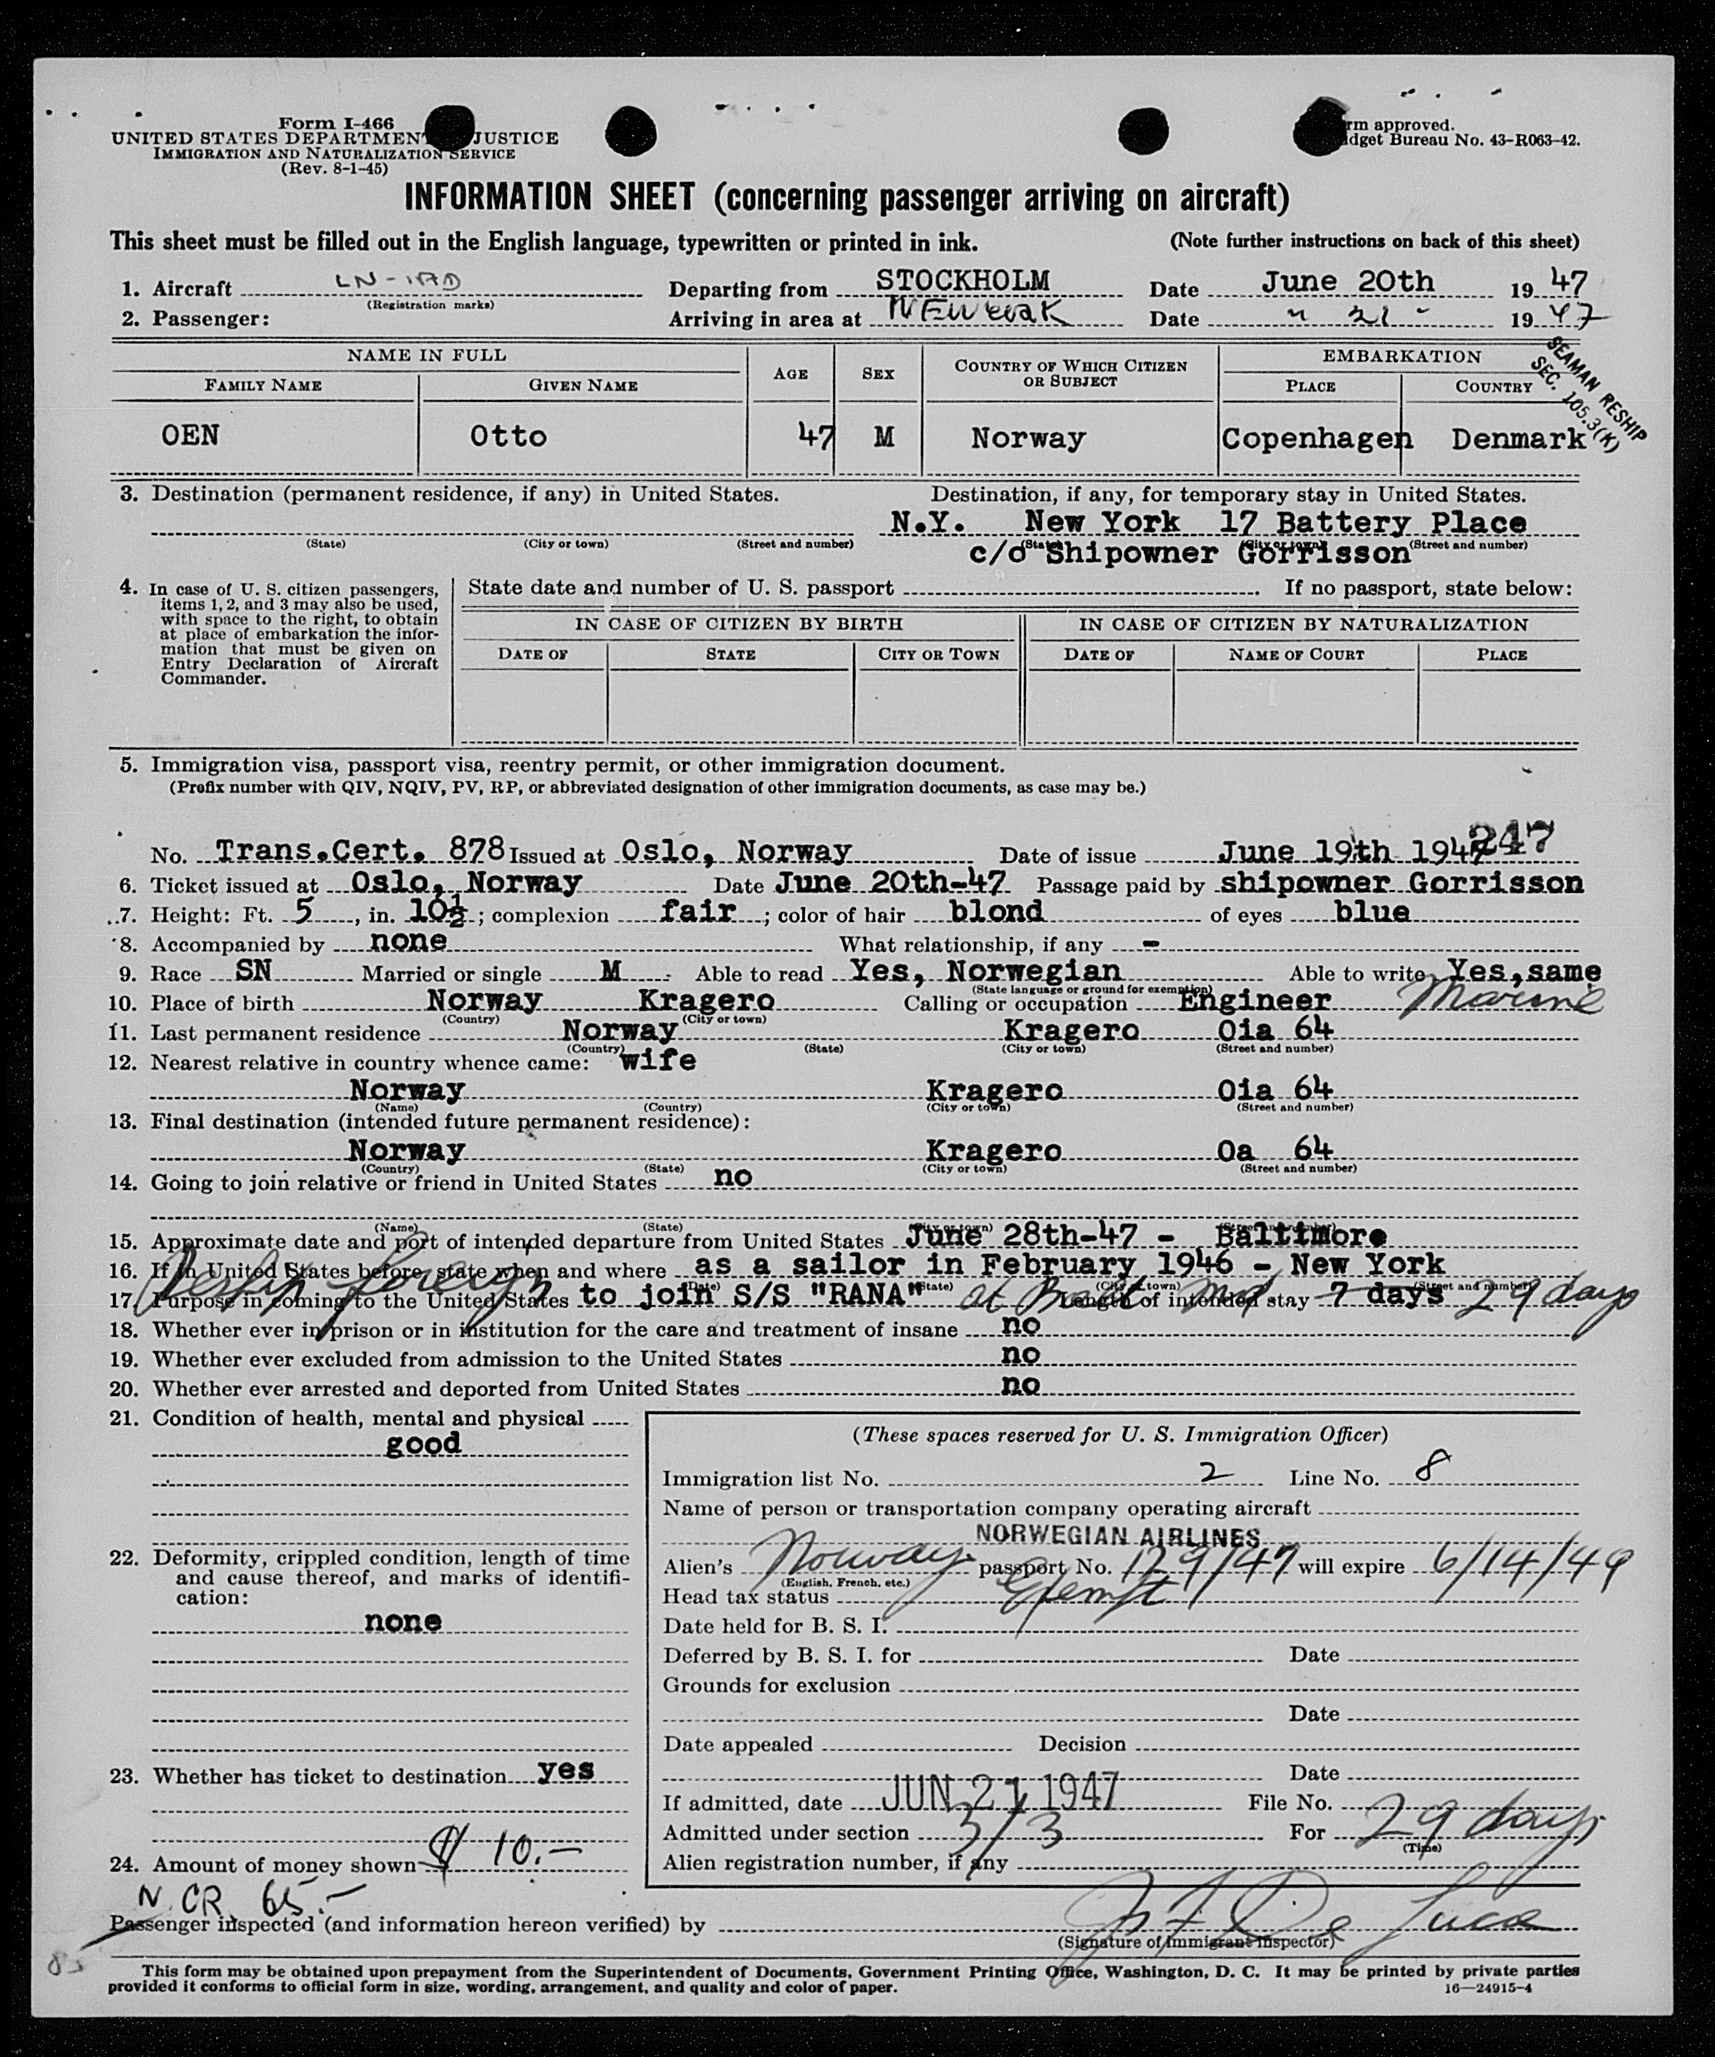 Form I-466
UNITED STATES DEPARTMENT JUSTICE
IMMIGRATION AND NATURALIZATION SERVICE
(Rev. 8-1-45)
rm approved.
dget Bureau No. 43-R063-42.
INFORMATION SHEET (concerning passenger arriving on aircraft)
This sheet must be filled out in the English language, typewritten or printed in ink. (Note further instructions on back of this sheet)
1. Aircraft Departing from STOCKHOLM Date June 20th 1947
(Registration marks)
2. Passenger: Arriving in area at NEWARK Date " 21 - 1947
SEAMAN RESHIP
SEC. 105.3(K)
NAME IN FULL AGE SEX COUNTRY OF WHICH CITIZEN OR SUBJECT EMBARKATION
FAMILY NAME GIVEN NAME PLACE COUNTRY
OEN Otto 47 M Norway Copenhagen Denmark
3. Destination (permanent residence, if any) in United States. Destination, if any, for temporary stay in United States.
N.Y. New York 17 Battery Place
(State) (City or town) (Street and number) (State) (City or town) (Street and number)
c/o Shipowner Gorrisson
4. In case of U. S. citizen passengers, items 1, 2, and 3 may also be used, with space to the right, to obtain at place of embarkation the information that must be given on Entry Declaration of Aircraft Commander.
State date and number of U. S. passport . If no passport, state below:
IN CASE OF CITIZEN BY BIRTH IN CASE OF CITIZEN BY NATURALIZATION
DATE OF STATE CITY OR TOWN DATE OF NAME OF COURT PLACE
5. Immigration visa, passport visa, reentry permit, or other immigration document.
(Prefix number with QIV, NQIV, PV, RP, or abbreviated designation of other immigration documents, as case may be.)
No. Trans.Cert. 878 Issued at Oslo, Norway Date of issue June 19th 1947 247
6. Ticket issued at Oslo, Norway Date June 20th-47 Passage paid by shipowner Gorrisson
7. Height: Ft. 5, in. 10½; complexion fair; color of hair blond of eyes blue
8. Accompanied by none What relationship, if any -
9. Race SN Married or single M Able to read Yes, Norwegian Able to write Yes,same
(State language or ground for exemption)
10. Place of birth Norway Kragero Calling or occupation Engineer Marine
(Country) (City or town)
11. Last permanent residence Norway Kragero Oia 64
(Country) (State) (City or town) (Street and number)
12. Nearest relative in country whence came: wife
Norway Kragero Oia 64
(Name) (Country) (City or town) (Street and number)
13. Final destination (intended future permanent residence):
Norway Kragero Oa 64
(Country) (State) (City or town) (Street and number)
14. Going to join relative or friend in United States no
(Name) (State) (City or town) (Street and number)
15. Approximate date and port of intended departure from United States June 28th-47 - Baltimore
16. If in United States before, state when and where as a sailor in February 1946 - New York
(Date) (State) (City or town) (Street and number)
17. Purpose in coming to the United States to join S/S "RANA" at Balt Md Length of intended stay 7 days 29 days
18. Whether ever in prison or in institution for the care and treatment of insane no
19. Whether ever excluded from admission to the United States no
20. Whether ever arrested and deported from United States no
21. Condition of health, mental and physical
good
22. Deformity, crippled condition, length of time and cause thereof, and marks of identification:
none
23. Whether has ticket to destination yes
24. Amount of money shown $ 10.-
N. CR. 65.-
(These spaces reserved for U. S. Immigration Officer)
Immigration list No. 2 Line No. 8
Name of person or transportation company operating aircraft
NORWEGIAN AIRLINES
Alien's Norway passport No. 129/47 will expire 6/14/49
(English, French, etc.)
Head tax status Exempt
Date held for B. S. I.
Deferred by B. S. I. for Date
Grounds for exclusion
Date
Date appealed Decision
Date
If admitted, date JUN 21 1947 File No.
Admitted under section 3/3 For 29 days
(Time)
Alien registration number, if any
Passenger inspected (and information hereon verified) by De Luca
(Signature of Immigrant Inspector)
85
This form may be obtained upon prepayment from the Superintendent of Documents, Government Printing Office, Washington, D. C. It may be printed by private parties
provided it conforms to official form in size, wording, arrangement, and quality and color of paper. 16—24915-4